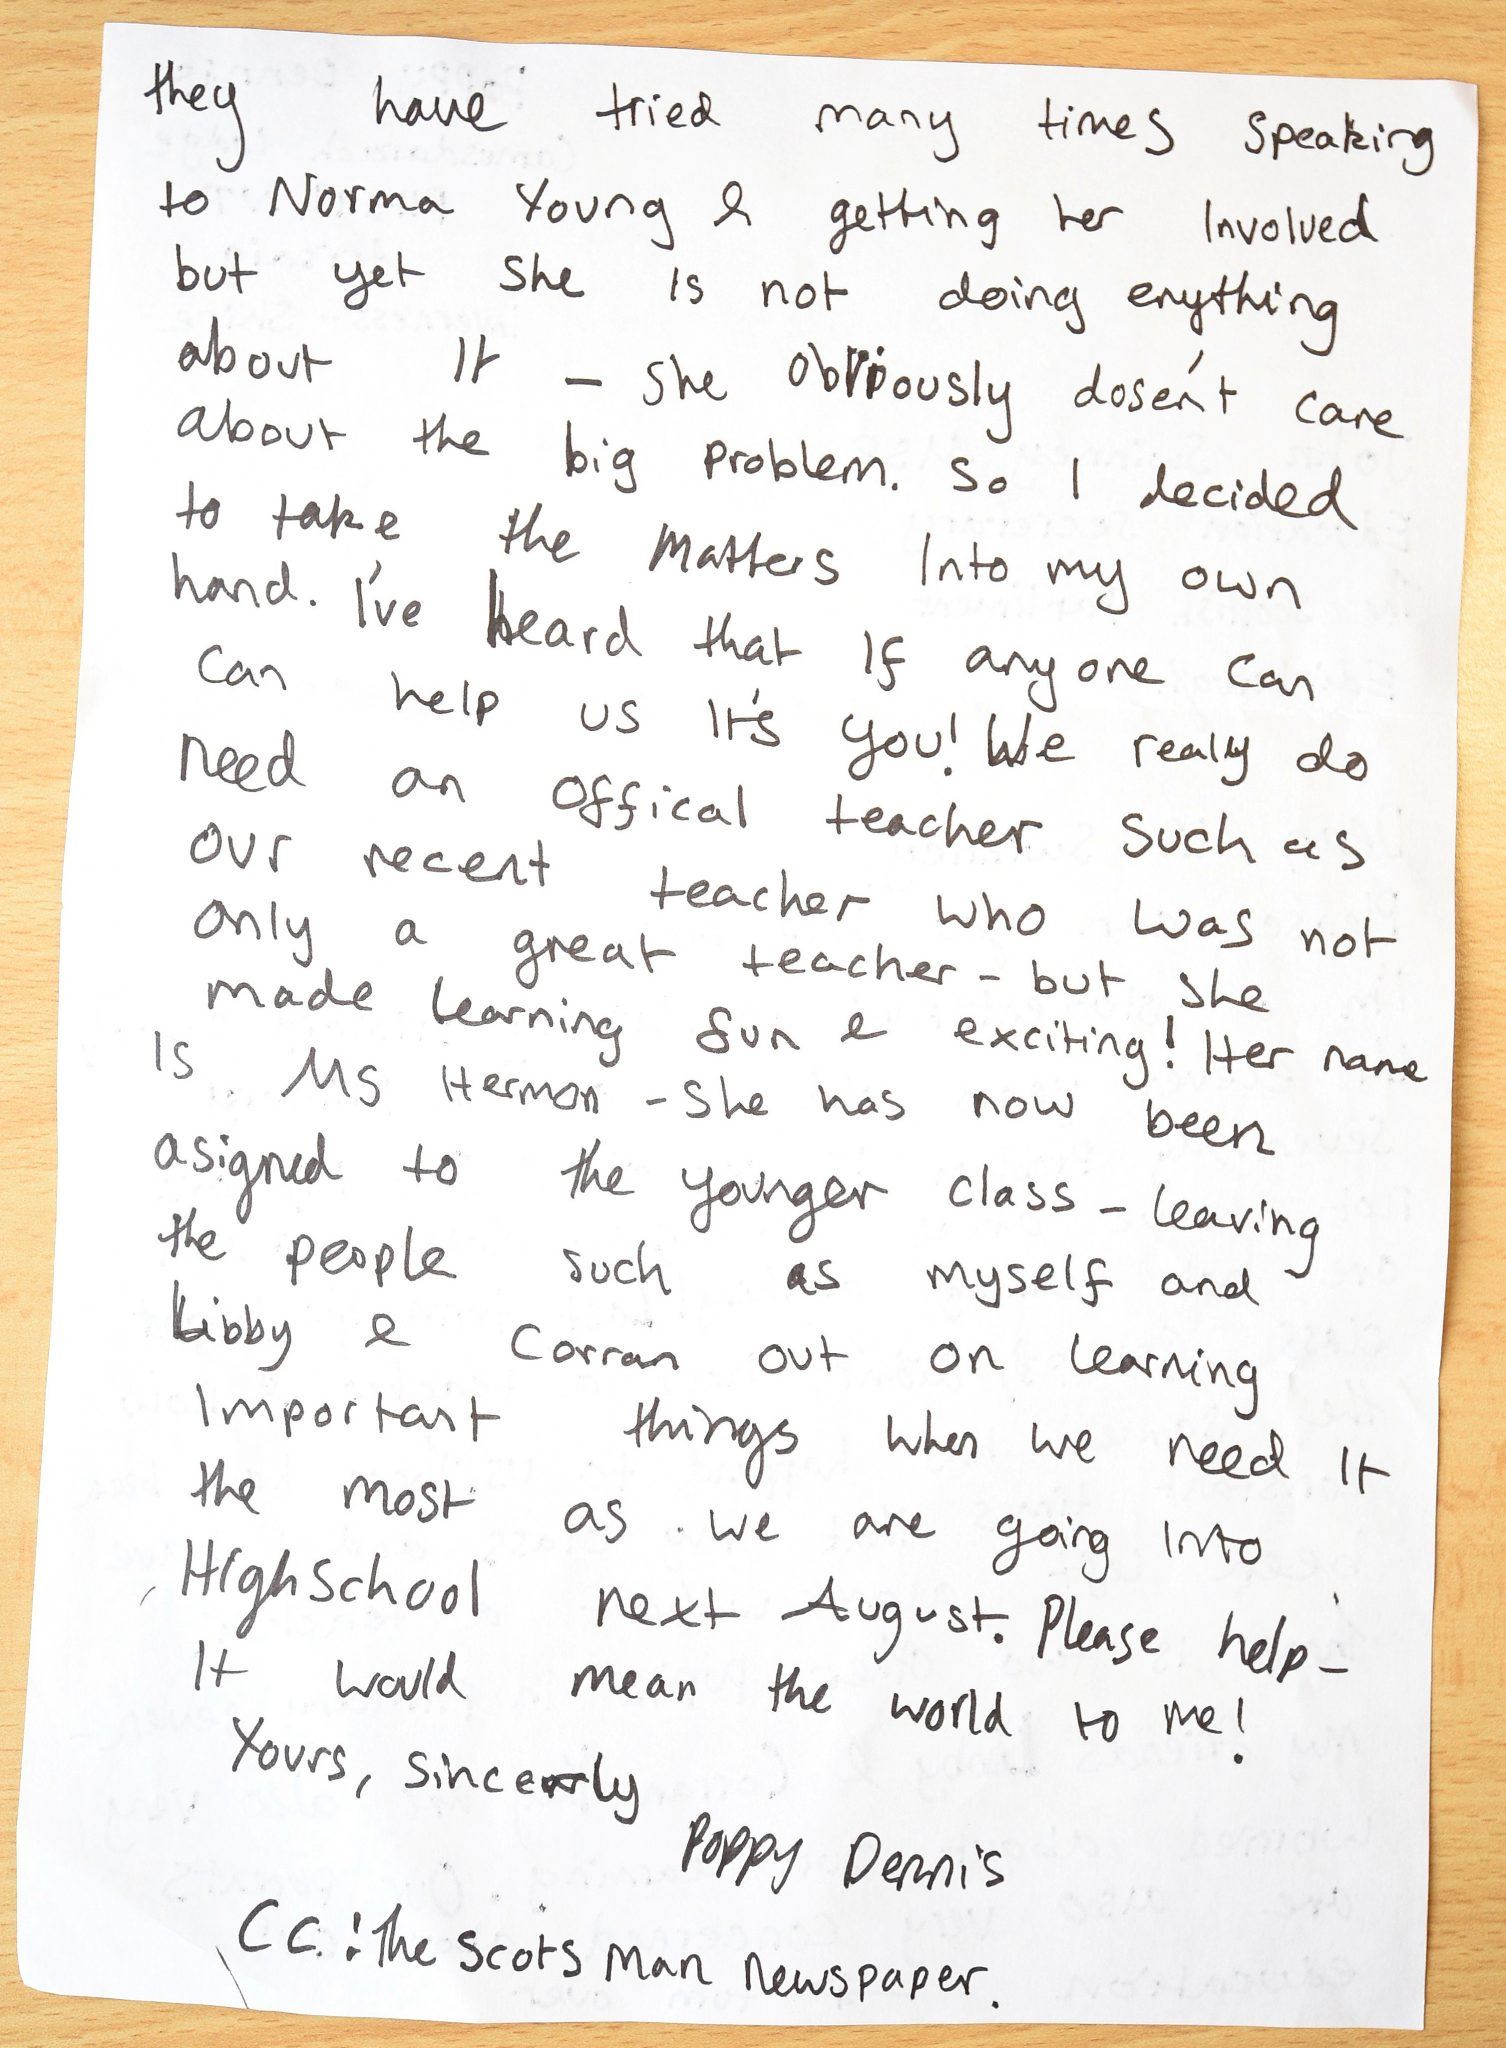 they have tried many times speaking
to Norma Young & getting her Involved
but yet she Is not doing enything
about It - she obviously dosen't care
about the big problem. So I decided
to take the Matters Into my own
hand. I've heard that If anyone can
can help us It's you! We really do
need an offical teacher such as
our recent teacher who was not
only a great teacher - but she
made learning fun & exciting! Her name
Is Ms Hermon - she has now been
asigned to the younger class - leaving
the people such as myself and
Libby & Corran out on learning
Important things when we need It
the most as we are going Into
Highschool next August. Please help -
It would mean the world to me!
Yours, sincerly
Poppy Dennis
CC.: The Scots Man newspaper.